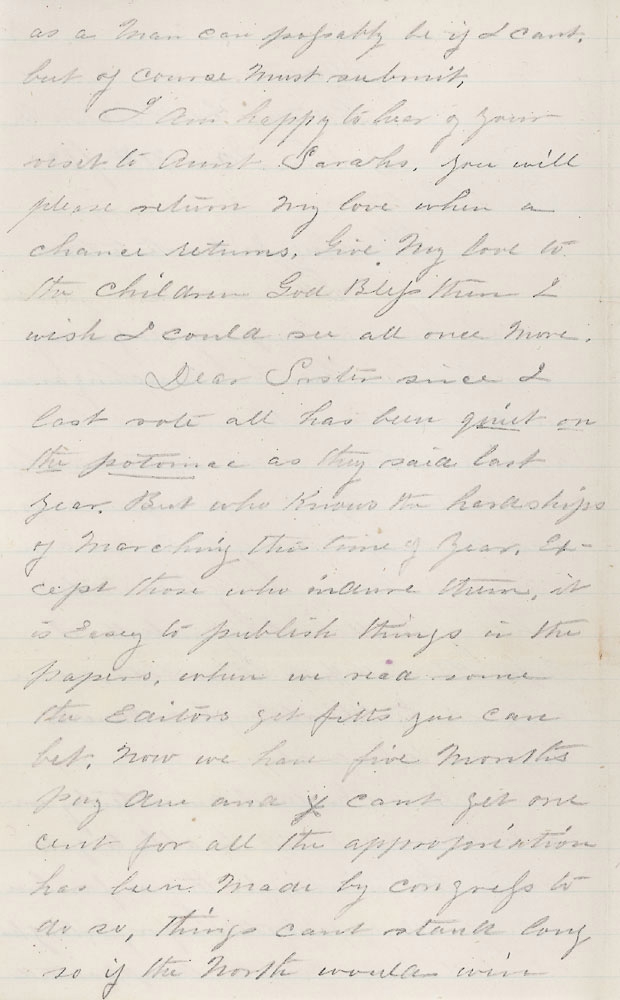 as a Man can possably be if I cant.
but of course Must submit,
I Am happy to hear of your
visit to Aunt Sarahs. you will
please return my love when a
chance returns. Give My love to
the children God Bless them I
wish I could see all once More.
Dear Sister since I
last rote all has been quiet on
the potomac as they said last
year. But who Knows the hardships
of Marching this time of Year, Ex-
cept those who indure them, it
is Easey to publish things in the
papers, when we read some
the Editors get fitts you can
bet. Now we have five Months
pay due and cant get one
cent for all the appropriation
has been Made by congress to
do so, things cant stand long
so if the North would win